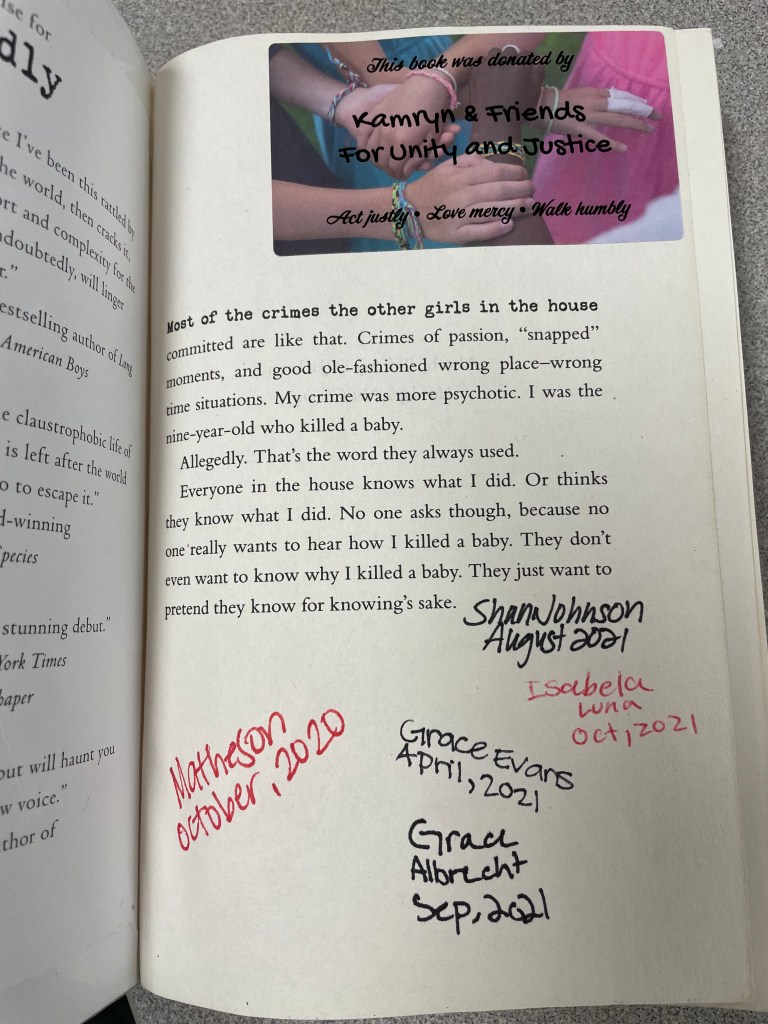 ise for
dly
e I've been this rattled by
he world, then cracks it,
ort and complexity for the
ndoubtedly, will linger
r."
estselling author of Long
American Boys
e claustrophobic life of
is left after the world
o to escape it."
d-winning
pecies
stunning debut."
York Times
haper
out will haunt you
w voice."
thor of
This book was donated by
Kamryn & Friends
For Unity and Justice
Act justly • Love mercy • Walk humbly
Most of the crimes the other girls in the house
committed are like that. Crimes of passion, “snapped”
moments, and good ole-fashioned wrong place—wrong
time situations. My crime was more psychotic. I was the
nine-year-old who killed a baby.
Allegedly. That’s the word they always used.
Everyone in the house knows what I did. Or thinks
they know what I did. No one asks though, because no
one really wants to hear how I killed a baby. They don’t
even want to know why I killed a baby. They just want to
pretend they know for knowing’s sake.
Shann Johnson
August 2021
Isabela
Luna
Oct, 2021
Matheson
october, 2020
Grace Evans
April, 2021
Grace
Albrecht
Sep, 2021